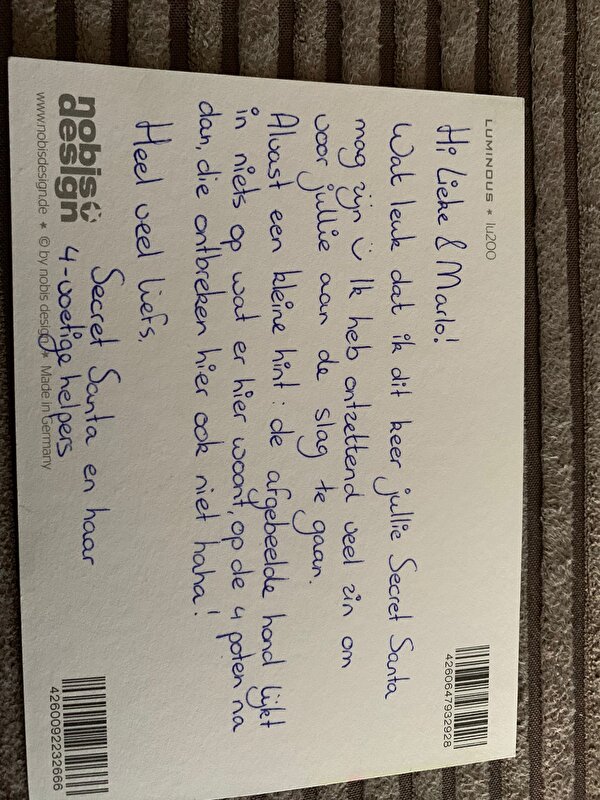 LUMINOUS * lu200
Hi Lieke & Marlo!
Wat leuk dat ik dit keer jullie Secret Santa
mag zijn :) Ik heb ontzettend veel zin om
voor jullie aan de slag te gaan.
Alvast een kleine hint: de afgebeelde hond lijkt
in niets op wat er hier woont, op de 4 poten na
dan, die ontbreken hier ook niet haha!
Heel veel liefs,
Secret Santa en haar
4-voetige helpers
nobis
design
www.nobisdesign.de * © by nobis design * Made in Germany
4260647932928
4260092232666